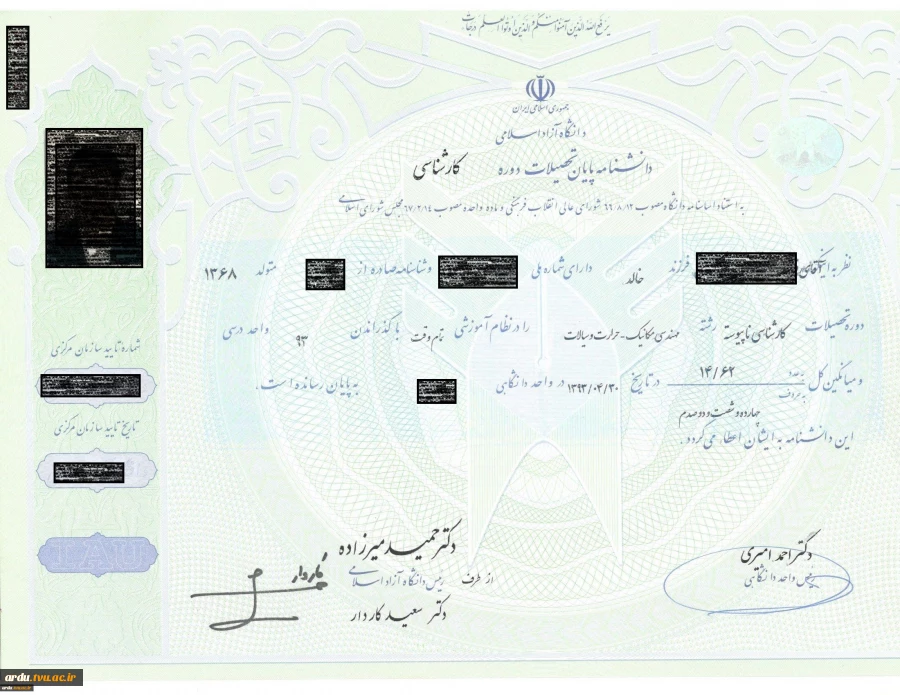 یرفع الله الذین آمنوا منکم و الذین اوتوا العلم درجات
جمهوری اسلامی ایران
دانشگاه آزاد اسلامی
دانشنامه پایان تحصیلات دوره کارشناسی
به استناد اساسنامه دانشگاه مصوب ۶۶/۸/۱۲ شورای عالی انقلاب فرهنگی و ماده واحده مصوب ۶۷/۲/۱۴ مجلس شورای اسلامی
نظر به اینکه آقای فرزند خالد دارای شماره ملی و شناسنامه صادره از متولد ۱۳۶۸
دوره تحصیلات کارشناسی ناپیوسته رشته مهندسی مکانیک-حرارت و سیالات را در نظام آموزشی تمام وقت با گذراندن ۹۳ واحد درسی
و میانگین کل به عدد ۱۴/۶۲ در تاریخ ۱۳۹۳/۰۴/۳۰ در واحد دانشگاهی به پایان رسانده است.
به حروف چهارده و شصت و دو صدم
این دانشنامه به ایشان اعطا می گردد.
شماره تایید سازمان مرکزی
تاریخ تایید سازمان مرکزی
IAU
دکتر احمد امیری
رئیس واحد دانشگاهی
دکتر حمید میرزاده
رئیس دانشگاه آزاد اسلامی
از طرف
دکتر سعید کاردار
ardu.tvu.ac.ir
ardu.tvu.ac.ir